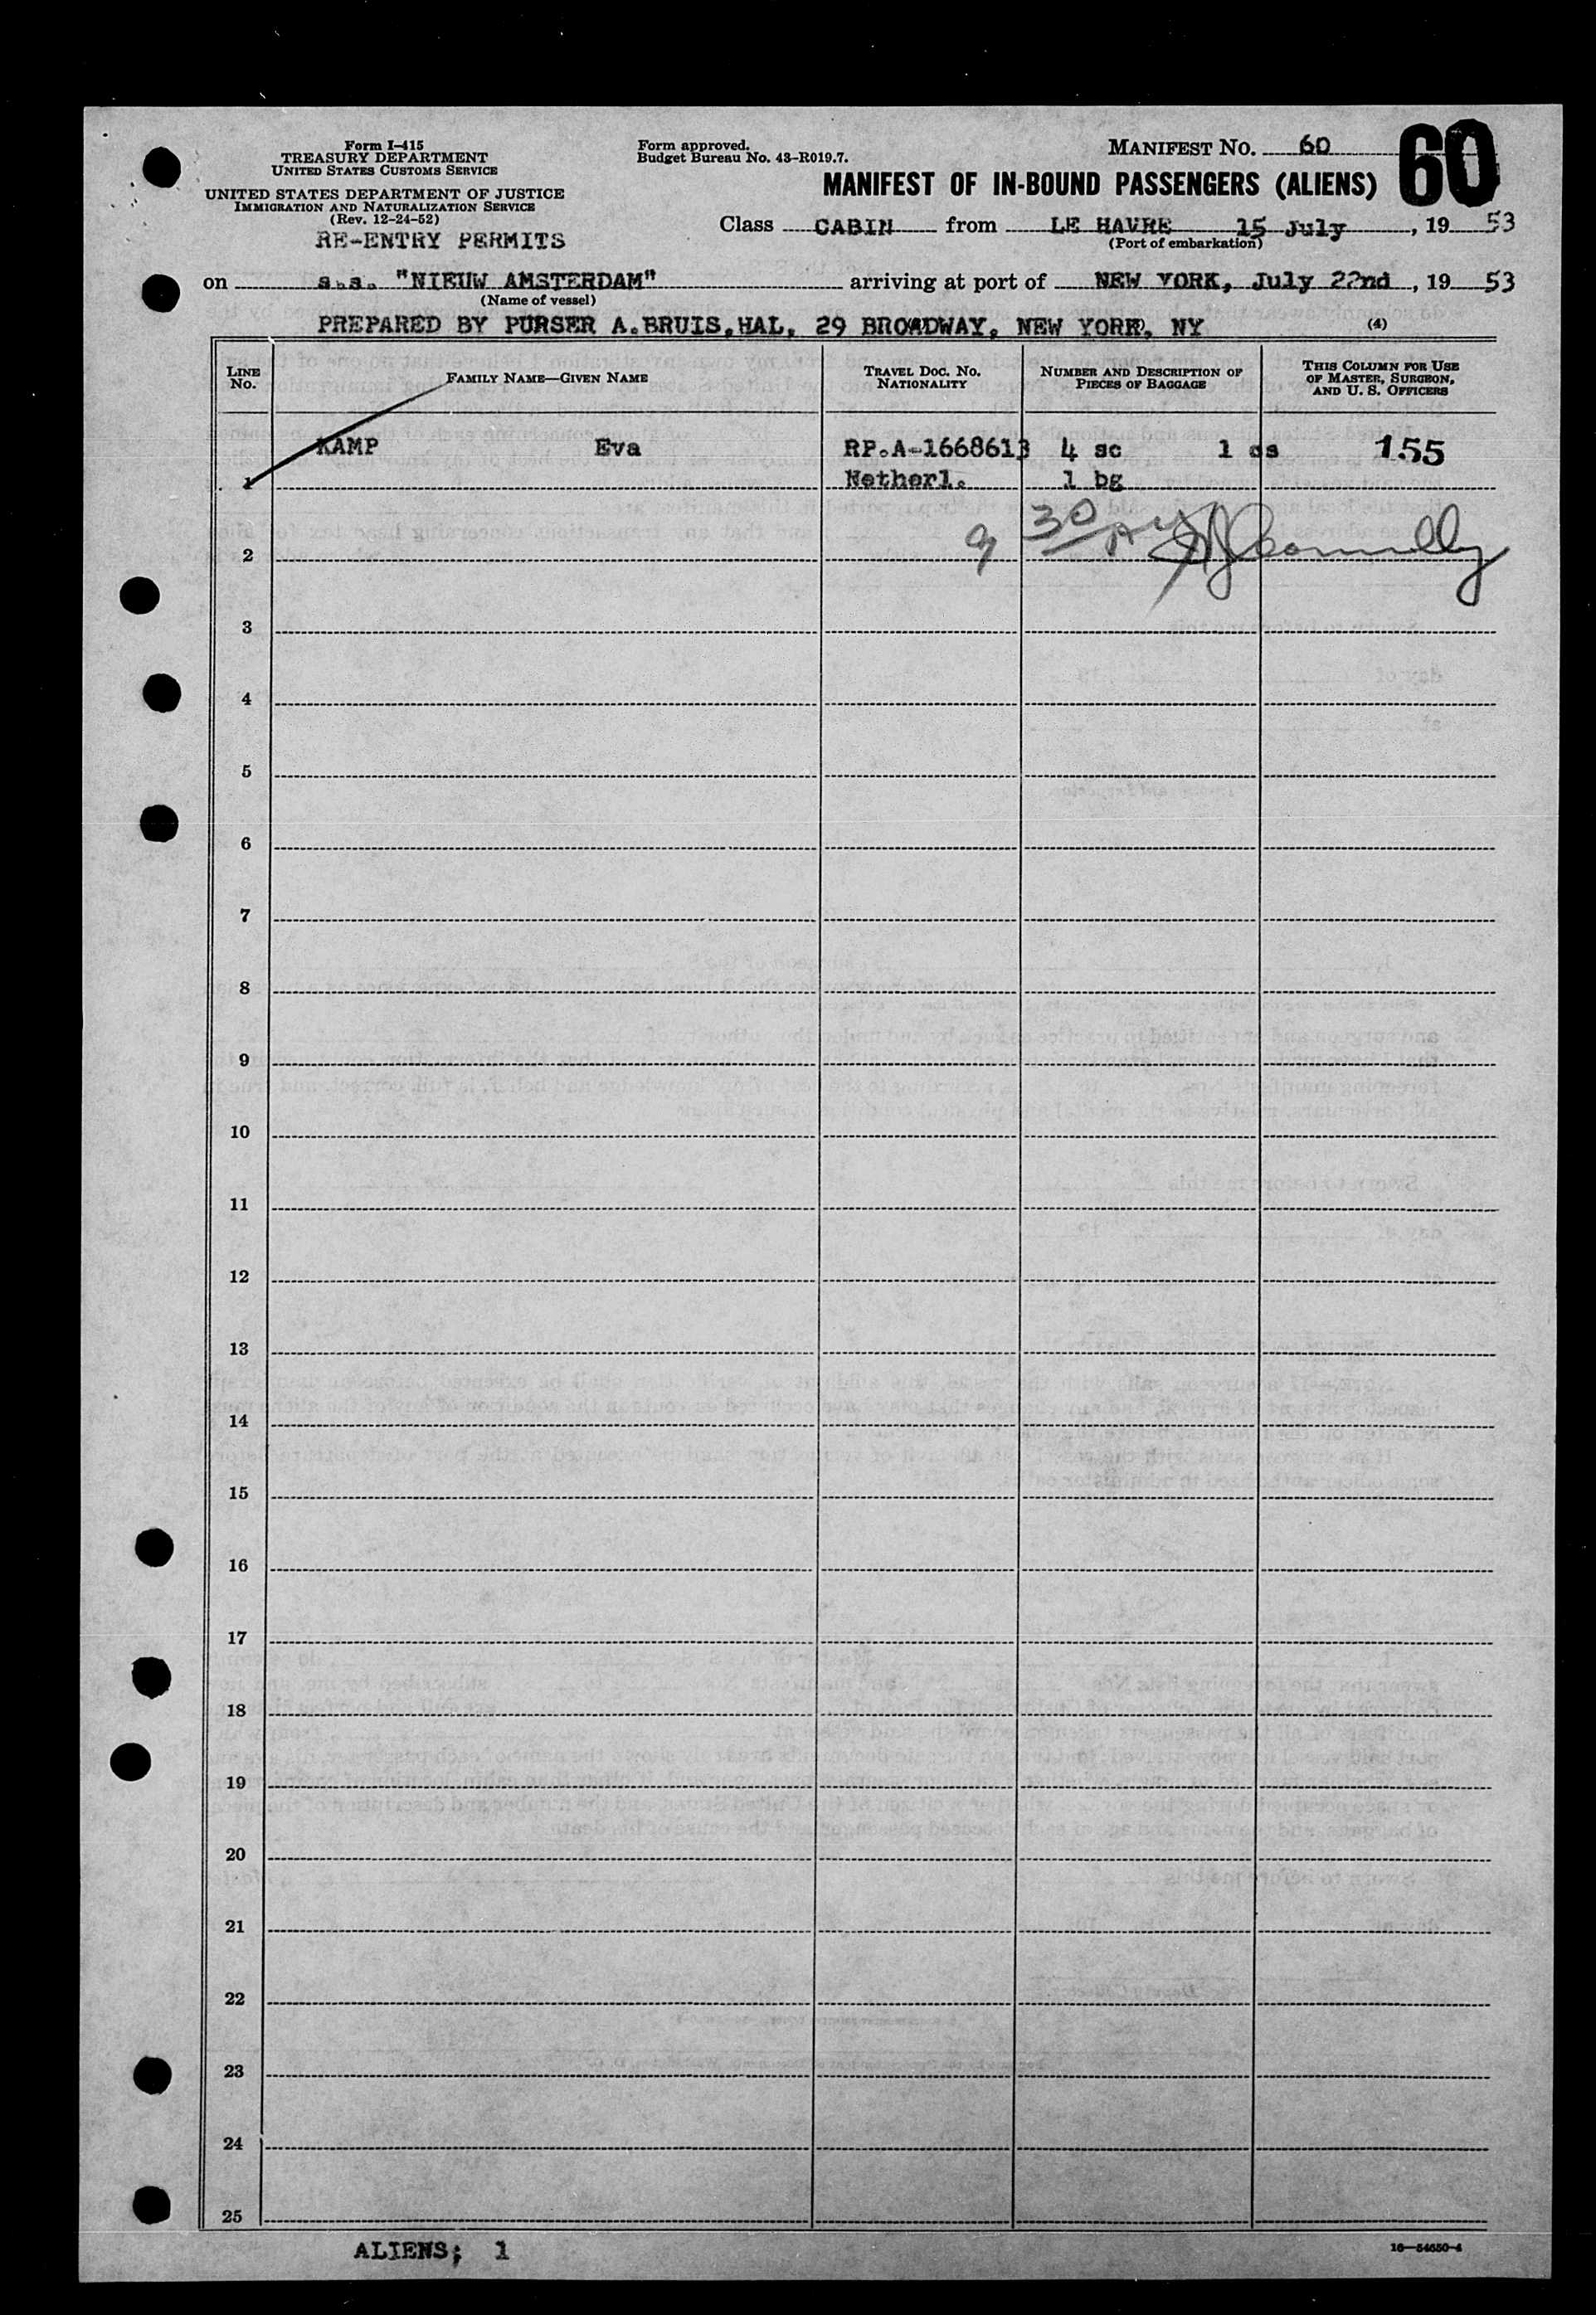 Form I-415
TREASURY DEPARTMENT
UNITED STATES CUSTOMS SERVICE
UNITED STATES DEPARTMENT OF JUSTICE
IMMIGRATION AND NATURALIZATION SERVICE
(Rev. 12-24-52)
RE-ENTRY PERMITS
Form approved.
Budget Bureau No. 43-R019.7.
MANIFEST NO. 60
60
MANIFEST OF IN-BOUND PASSENGERS (ALIENS)
Class CABIN from LE HAVRE 15 July, 19 53
(Port of embarkation)
on s.s. "NIEUW AMSTERDAM" arriving at port of NEW YORK, July 22nd, 19 53
(Name of vessel)
PREPARED BY PURSER A.BRUIS.HAL. 29 BROADWAY. NEW YORK. NY (4)
LINE NO. FAMILY NAME—GIVEN NAME TRAVEL DOC. NO. NATIONALITY NUMBER AND DESCRIPTION OF PIECES OF BAGGAGE THIS COLUMN FOR USE OF MASTER, SURGEON, AND U. S. OFFICERS
1 KAMP Eva RP.A-1668613 4 sc 1 cs 155
Netherl. 1 bg
2 9 30 Connolly
3
4
5
6
7
8
9
10
11
12
13
14
15
16
17
18
19
20
21
22
23
24
25
ALIENS; 1
16—54650-4